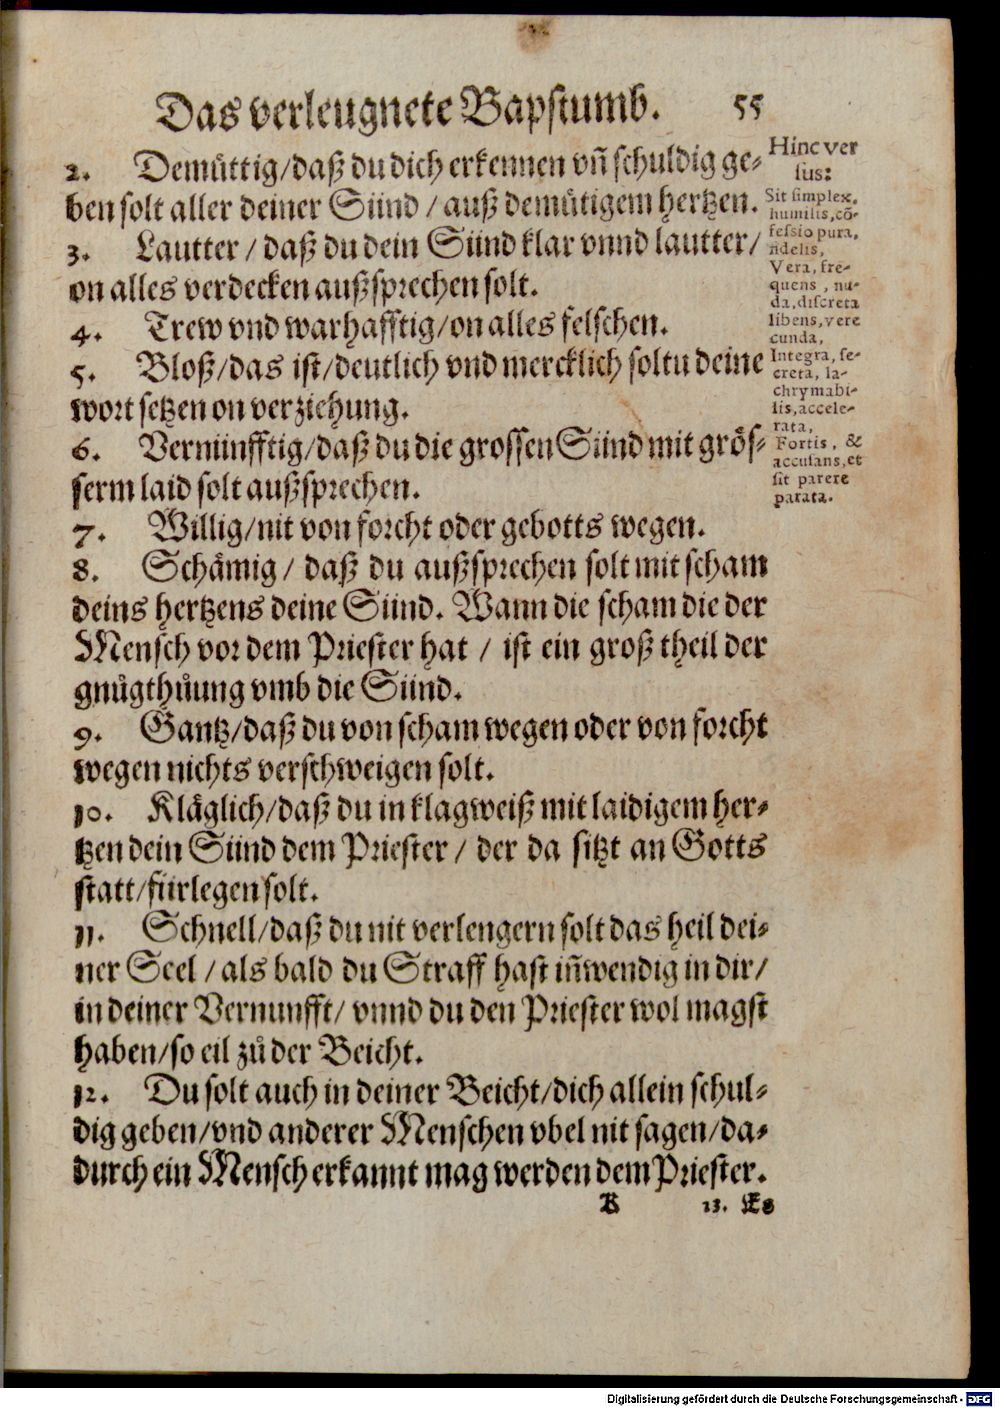 Das verleugnete Bapstumb. 55
2. Demüttig/daß du dich erkennen vñ schuldig ge-
ben solt aller deiner Sünd / auß demütigem hertzen.
3. Lautter / daß du dein Sünd klar vnnd lautter/
on alles verdecken außsprechen solt.
4. Trew vnd warhafftig/on alles felschen.
5. Bloß/das ist/deutlich vnd mercklich soltu deine
wort setzen on verziehung.
6. Vernünfftig/daß du die grossen Sünd mit grös-
serm laid solt außsprechen.
7. Willig/nit von forcht oder gebotts wegen.
8. Schämig / daß du außsprechen solt mit scham
deins hertzens deine Sünd. Wann die scham die der
Mensch vor dem Priester hat / ist ein groß theil der
gnůgthůung vmb die Sünd.
9. Gantz/daß du von scham wegen oder von forcht
wegen nichts verschweigen solt.
10. Kläglich/daß du in klagweiß mit laidigem her-
tzen dein Sünd dem Priester / der da sitzt an Gotts
statt/fürlegen solt.
11. Schnell/daß du nit verlengern solt das heil dei-
ner Seel / als bald du Straff hast iñwendig in dir/
in deiner Vernunfft/ vnnd du den Priester wol magst
haben/so eil zů der Beicht.
12. Du solt auch in deiner Beicht/dich allein schul-
dig geben/vnd anderer Menschen vbel nit sagen/da-
durch ein Mensch erkannt mag werden dem Priester.
K 13. Es
Hinc ver
sus:
Sit simplex,
humilis, cõ-
fessio pura,
fidelis,
Vera, fre-
quens, nu-
da, discreta
libens, vere
cunda,
Integra, se-
creta, la-
chrymabi-
lis, accele-
rata,
Fortis, &
accusans, et
sit parere
parata.
Digitalisierung gefördert durch die Deutsche Forschungsgemeinschaft - DFG